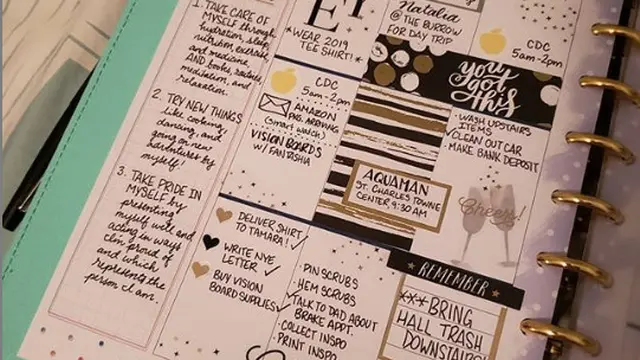 1. TAKE CARE OF
MYSELF through
hydration, sleep,
nutrition, exercise,
and medicine,
AND books, nature,
meditation, and
relaxation.
2. TRY NEW THINGS
like cooking,
dancing, and
going on new
adventures by
myself!
3. TAKE PRIDE IN
MYSELF by
presenting
myself well and
acting in ways
I'm proud of
and which
represent the
person I am.
*WEAR 2019
TEE SHIRT!*
CDC
5am-2pm
AMAZON
PKG. ARRIVING
(smart watch)
VISION BOARDS
W/ FANTASHIA
DELIVER SHIRT
TO TAMARA!
WRITE NYE
LETTER
BUY VISION
BOARD SUPPLIES
Natalia
@ THE BURROW
FOR DAY TRIP
AQUAMAN
ST. CHARLES TOWNE
CENTER 9:30 AM
PIN SCRUBS
HEM SCRUBS
TALK TO DAD ABOUT
BRAKE APPT.
COLLECT INSPO
PRINT INSPO
CDC
5am-2pm
you
got
this
WASH UPSTAIRS
ITEMS
CLEAN OUT CAR
MAKE BANK DEPOSIT
Cheers!
* REMEMBER *
***BRING
HALL TRASH
DOWNSTAIRS